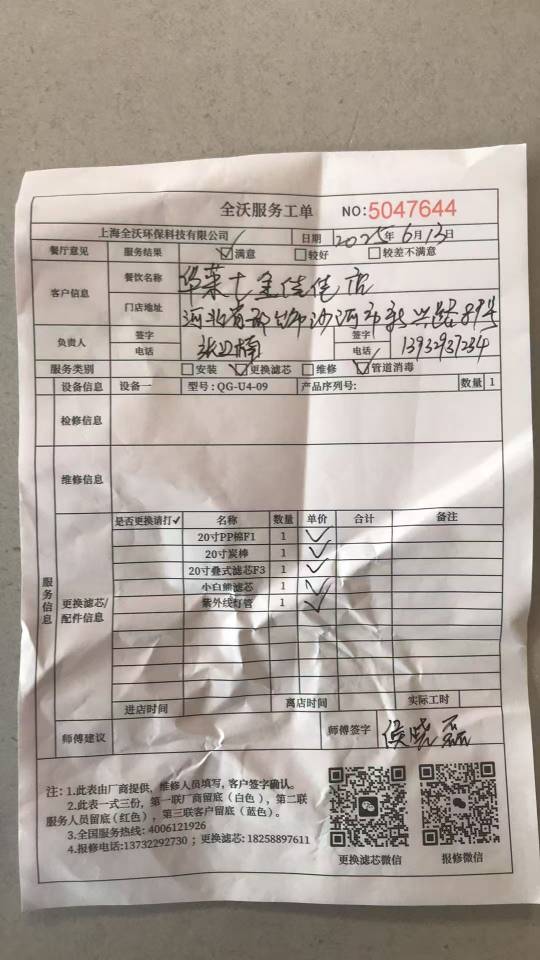 全沃服务工单 NO:5047644
上海全沃环保科技有限公司 日期 2025年6月13日
餐厅意见 服务结果 ☑满意 □较好 □较差不满意
客户信息 餐饮名称 华莱士金佳佳店
门店地址 河北省邢台市沙河市新兴路89号
负责人 签字 签字
电话 电话 13932937234
服务类别 □安装 ☑更换滤芯 □维修 ☑管道消毒
设备信息 设备一 型号:QG-U4-09 产品序列号: 数量 1
检修信息
维修信息
服务信息
更换滤芯/配件信息
是否更换请打✓ 名称 数量 单价 合计 备注
20寸PP棉F1 1 ✓
20寸炭棒 1 ✓
20寸叠式滤芯F3 1 ✓
小白熊滤芯 1 ✓
紫外线灯管 1 ✓
进店时间 离店时间 实际工时
师傅建议 师傅签字 侯晓磊
注:1.此表由厂商提供、维修人员填写,客户签字确认。
2.此表一式三份,第一联厂商留底(白色),第二联
服务人员留底(红色),第三联客户留底(蓝色)。
3.全国服务热线:4006121926
4.报修电话:13732292730;更换滤芯:18258897611
更换滤芯微信 报修微信